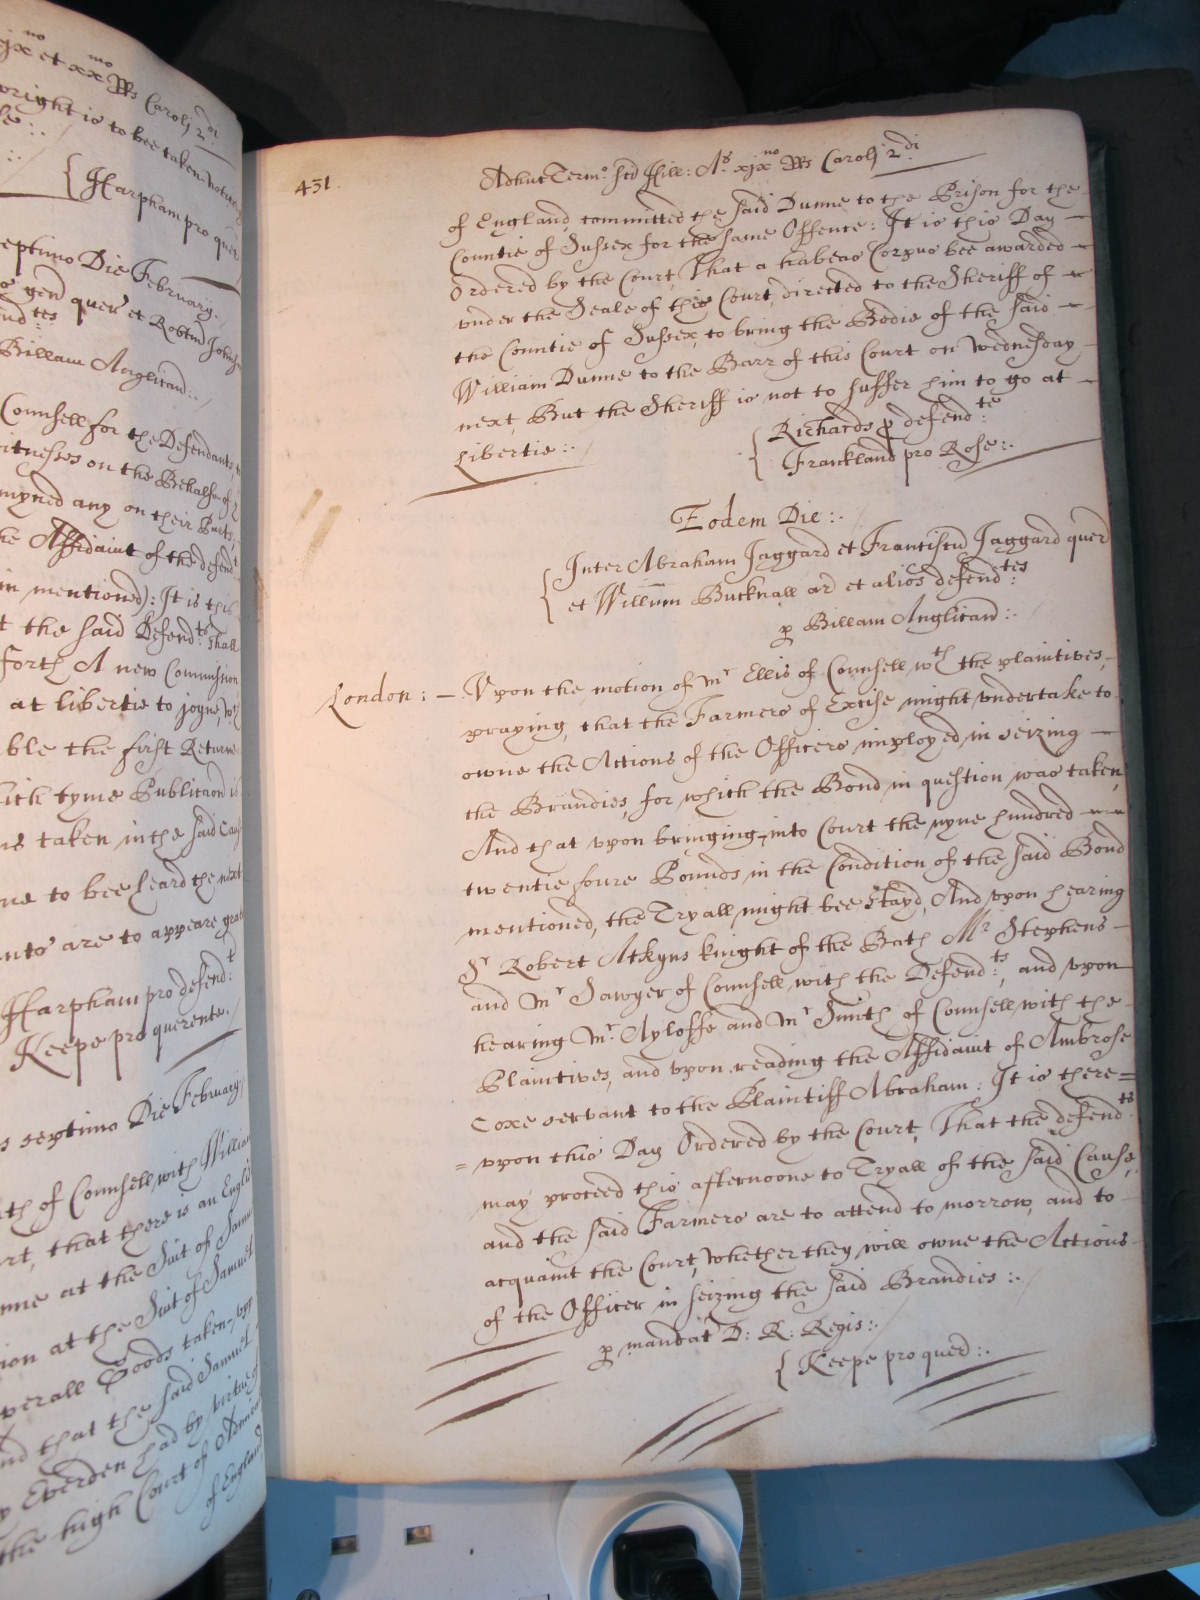 jx no et xx mo RRs Caroli 2 di
wright is to bee taken notice
{Harpham pro quer
septimo Die February
gen quer et Robtm Johns
Billam Anglican:.
Counsell for the Defendants
witnesses on the Behalfe of
myned any on their Parts
the Affidavit of the defend t
in mentioned): It is this
t the said Defend:ts shall
forth A new Commission
at libertie to joyne, w
ble the first Returne
ich tyme Publicacon is
ns taken in the said Caus
ne to bee heard the next
nts are to appeare grat
Harpham pro defend:t
Keepe pro querente.
s septimo Die February
th of Counsell with William
rt, that there is an Engli
me at the Suit of Samu
ion at the Suit of Samuel
verall Goods taken upp
nd that the said Samuel
y Everden had by virtue of
the high Court of Admi
of England
431.
Adhuc Termo: scd Hill: Ao. xjx no RRs Caroli 2 di
of England, committed the said Dunne to the Prison for the
Countie of Sussex for the same Offence: It is this Day —
Ordered by the Court, That a habeas Corpus bee awarded —
under the Seale of this Court, directed to the Sheriff of —
the Countie of Sussex, to bring the Bodie of the said —
William Dunne to the Barr of this Court on Wednesday
next, But the Sheriff is not to suffer him to go at —
Libertie :.
{Richards p defend:te
Frankland pro Rose:.
Eodem Die :.
{Inter Abraham Jaggard et Franciscu Jaggard quer
et Willum Bucknall ar et alios defend:tes
p Billam Anglican :.
London : — Upon the motion of Mr Ellis of Counsell wth the plaintives,
praying, that the Farmers of Excise might undertake to
owne the Actions of the Officers imployed in seizing —
the Brandies, for which the Bond in question was taken,
And that upon bringing into Court the nyne hundred —
twentie foure Pounds in the Condition of the said Bond
mentioned, the Tryall might bee stayd, And upon hearing
Sr Robert Atkyns knight of the Bath Mr Stephens —
and Mr Sawyer of Counsell with the Defend:ts, and upon
hearing Mr Ayloffe and Mr Smith of Counsell with the —
Plaintives, and upon reading the Affidavit of Ambrose
Coxe servant to the Plaintiff Abraham: It is there=
=upon this Day Ordered by the Court, That the defend:ts
may proceed this afternoone to Tryall of the said Cause,
and the said Farmers are to attend to morrow, and to —
acquaint the Court, whether they will owne the Actions
of the Officer in seizing the said Brandies :.
p mandat D: R: Regis:.
{Keepe pro quer :.